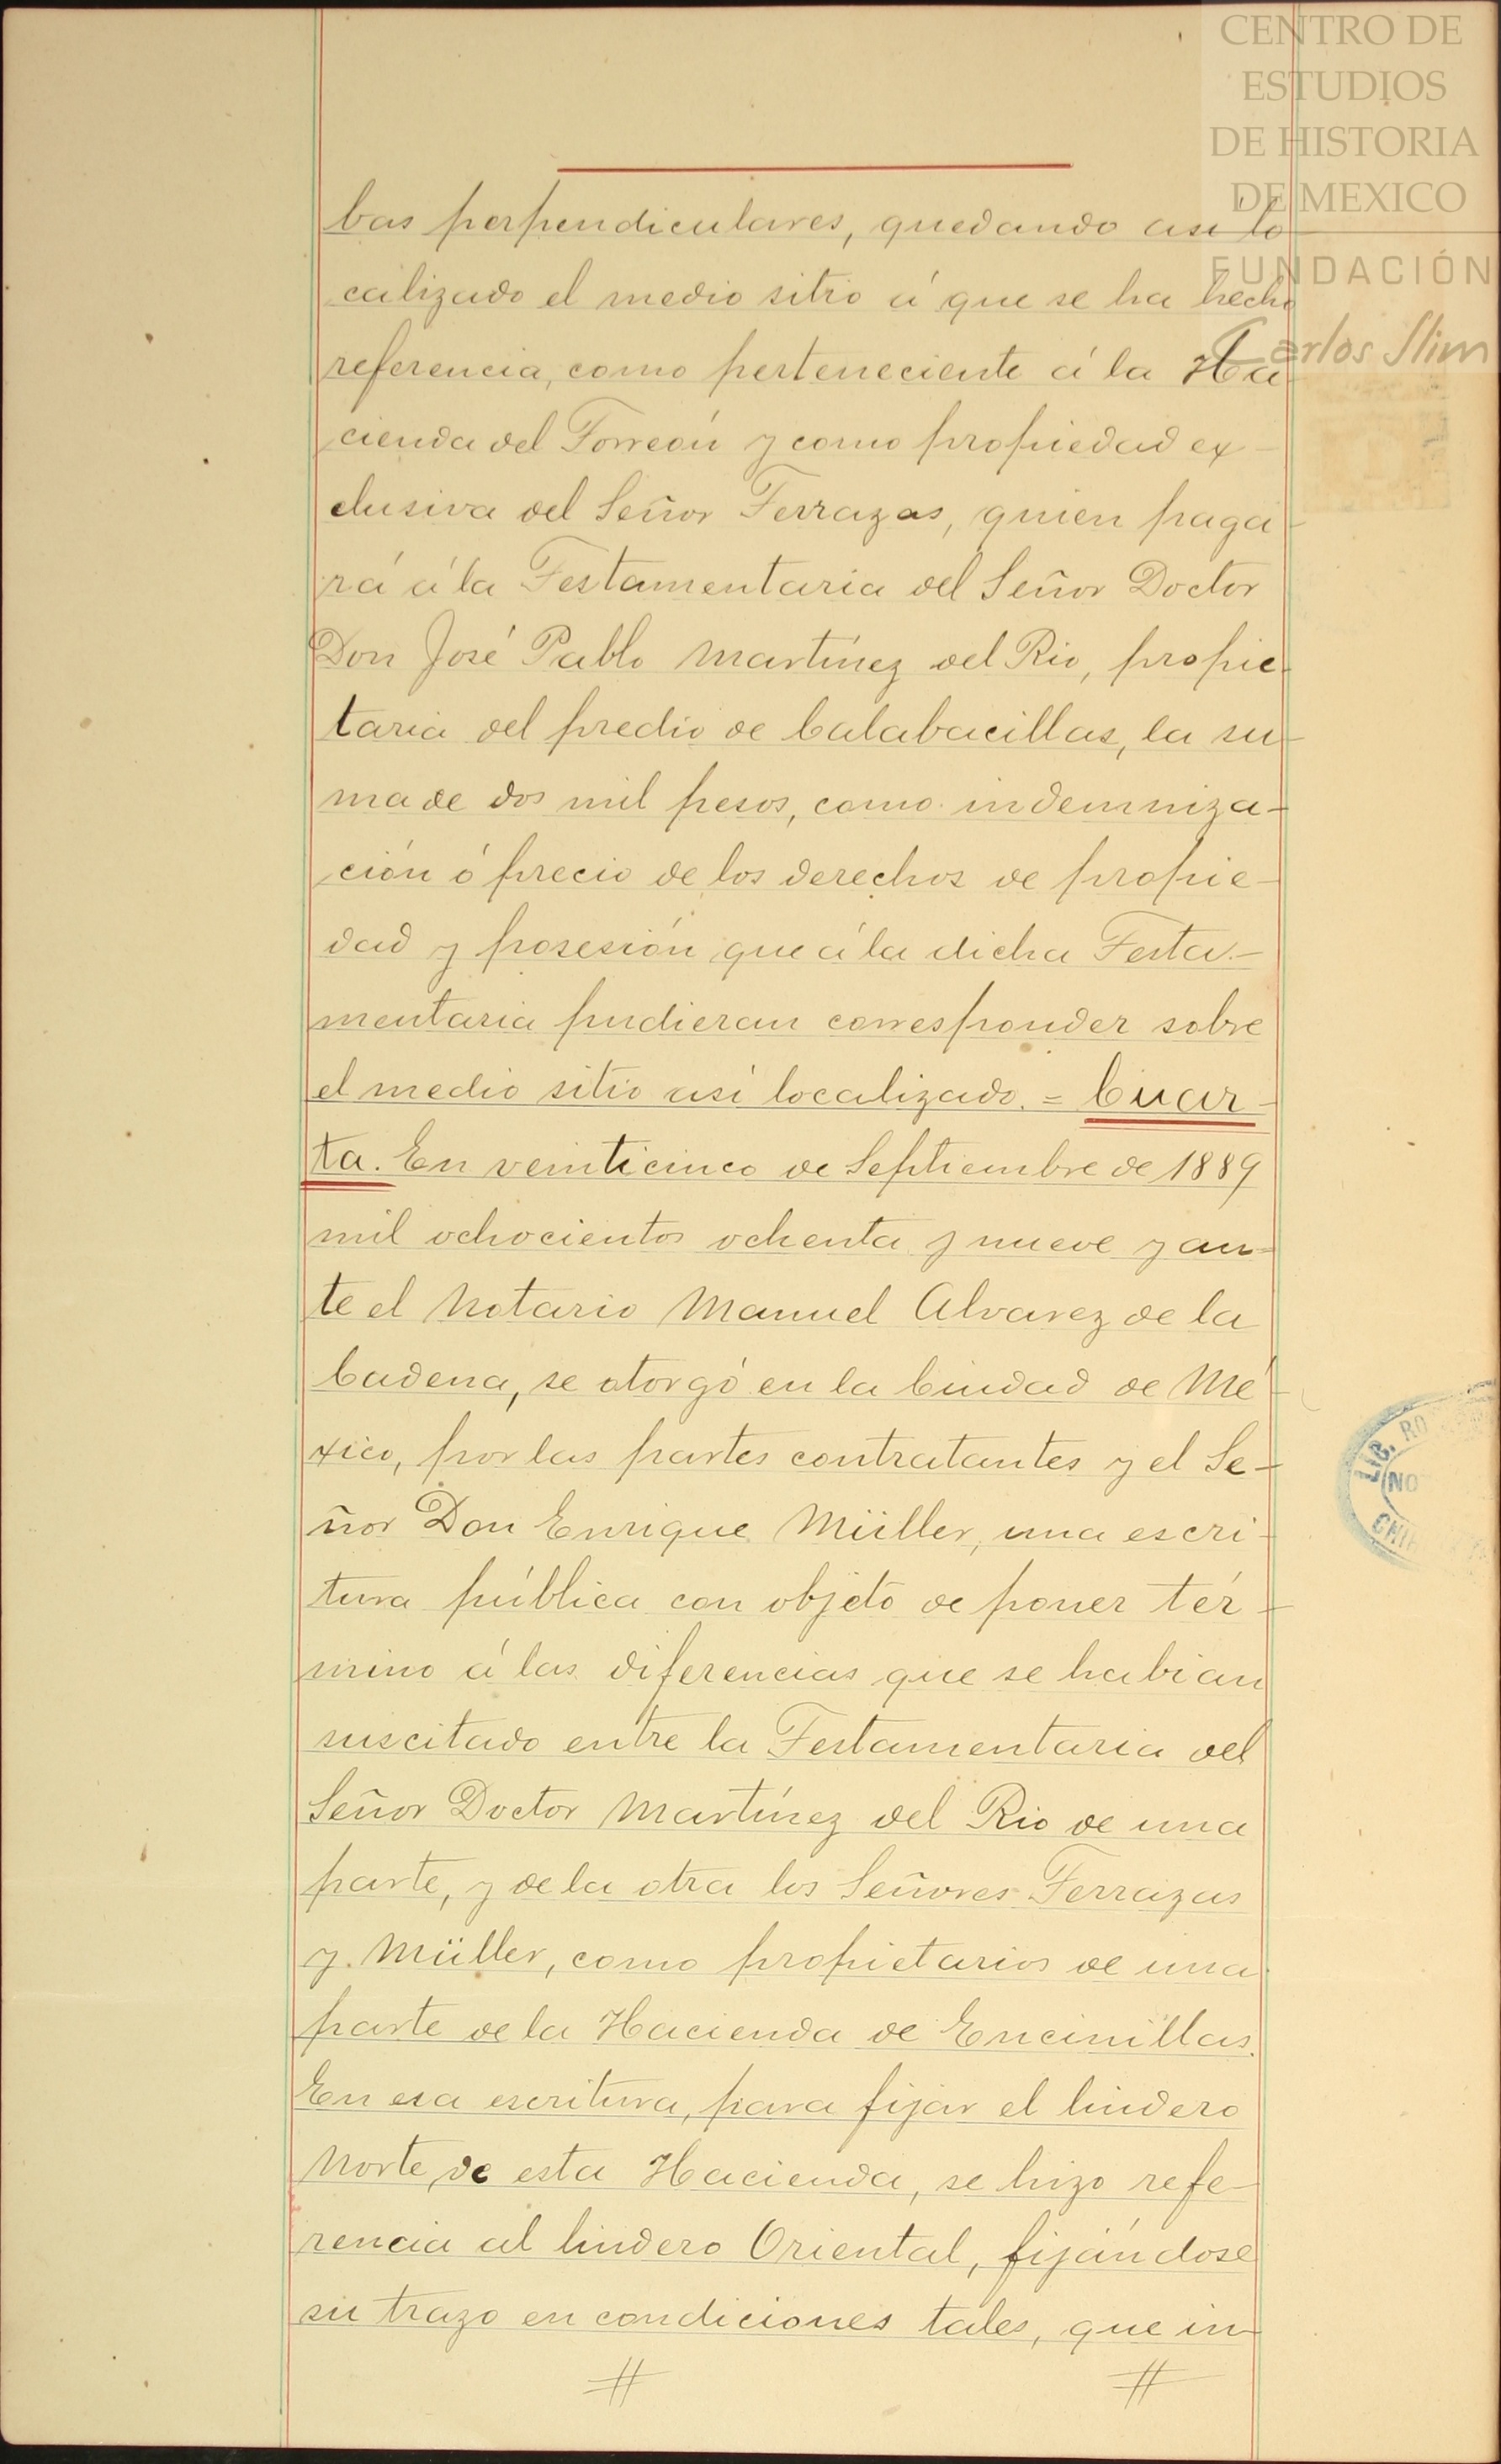 CENTRO DE
ESTUDIOS
DE HISTORIA
DE MEXICO
FUNDACIÓN
Carlos Slim
bas perpendiculares, quedando asi lo
calizado el medio sitio á que se ha hecho
referencia, como perteneciente á la Ha
cienda del Torreón y como propiedad ex-
clusiva del Señor Terrazas, quien paga-
rá á la Testamentaria del Señor Doctor
Don José Pablo Martínez del Rio, propie-
taria del predio de Calabacillas, la su-
ma de dos mil pesos, como indemniza-
ción ó precio de los derechos de propie-
dad y posesión que á la dicha Testa-
mentaria pudieran corresponder sobre
el medio sitio así localizado. = Cuar-
ta. En veinticinco de Septiembre de 1889
mil ochocientos ochenta y nueve y an-
te el Notario Manuel Alvarez de la
Cadena, se otorgó en la Ciudad de Mé-
xico, por las partes contratantes y el Se-
ñor Don Enrique Müller, una escri-
tura pública con objeto de poner tér-
mino á las diferencias que se habian
suscitado entre la Testamentaria del
Señor Doctor Martínez del Rio de una
parte, y de la otra los Señores Terrazas
y Müller, como propietarios de una
parte de la Hacienda de Encinillas.
En esa escritura, para fijar el lindero
Norte de esta Hacienda, se hizo refe-
rencia al lindero Oriental, fijándose
su trazo en condiciones tales, que in-
LIC. RO
NO
CHIH